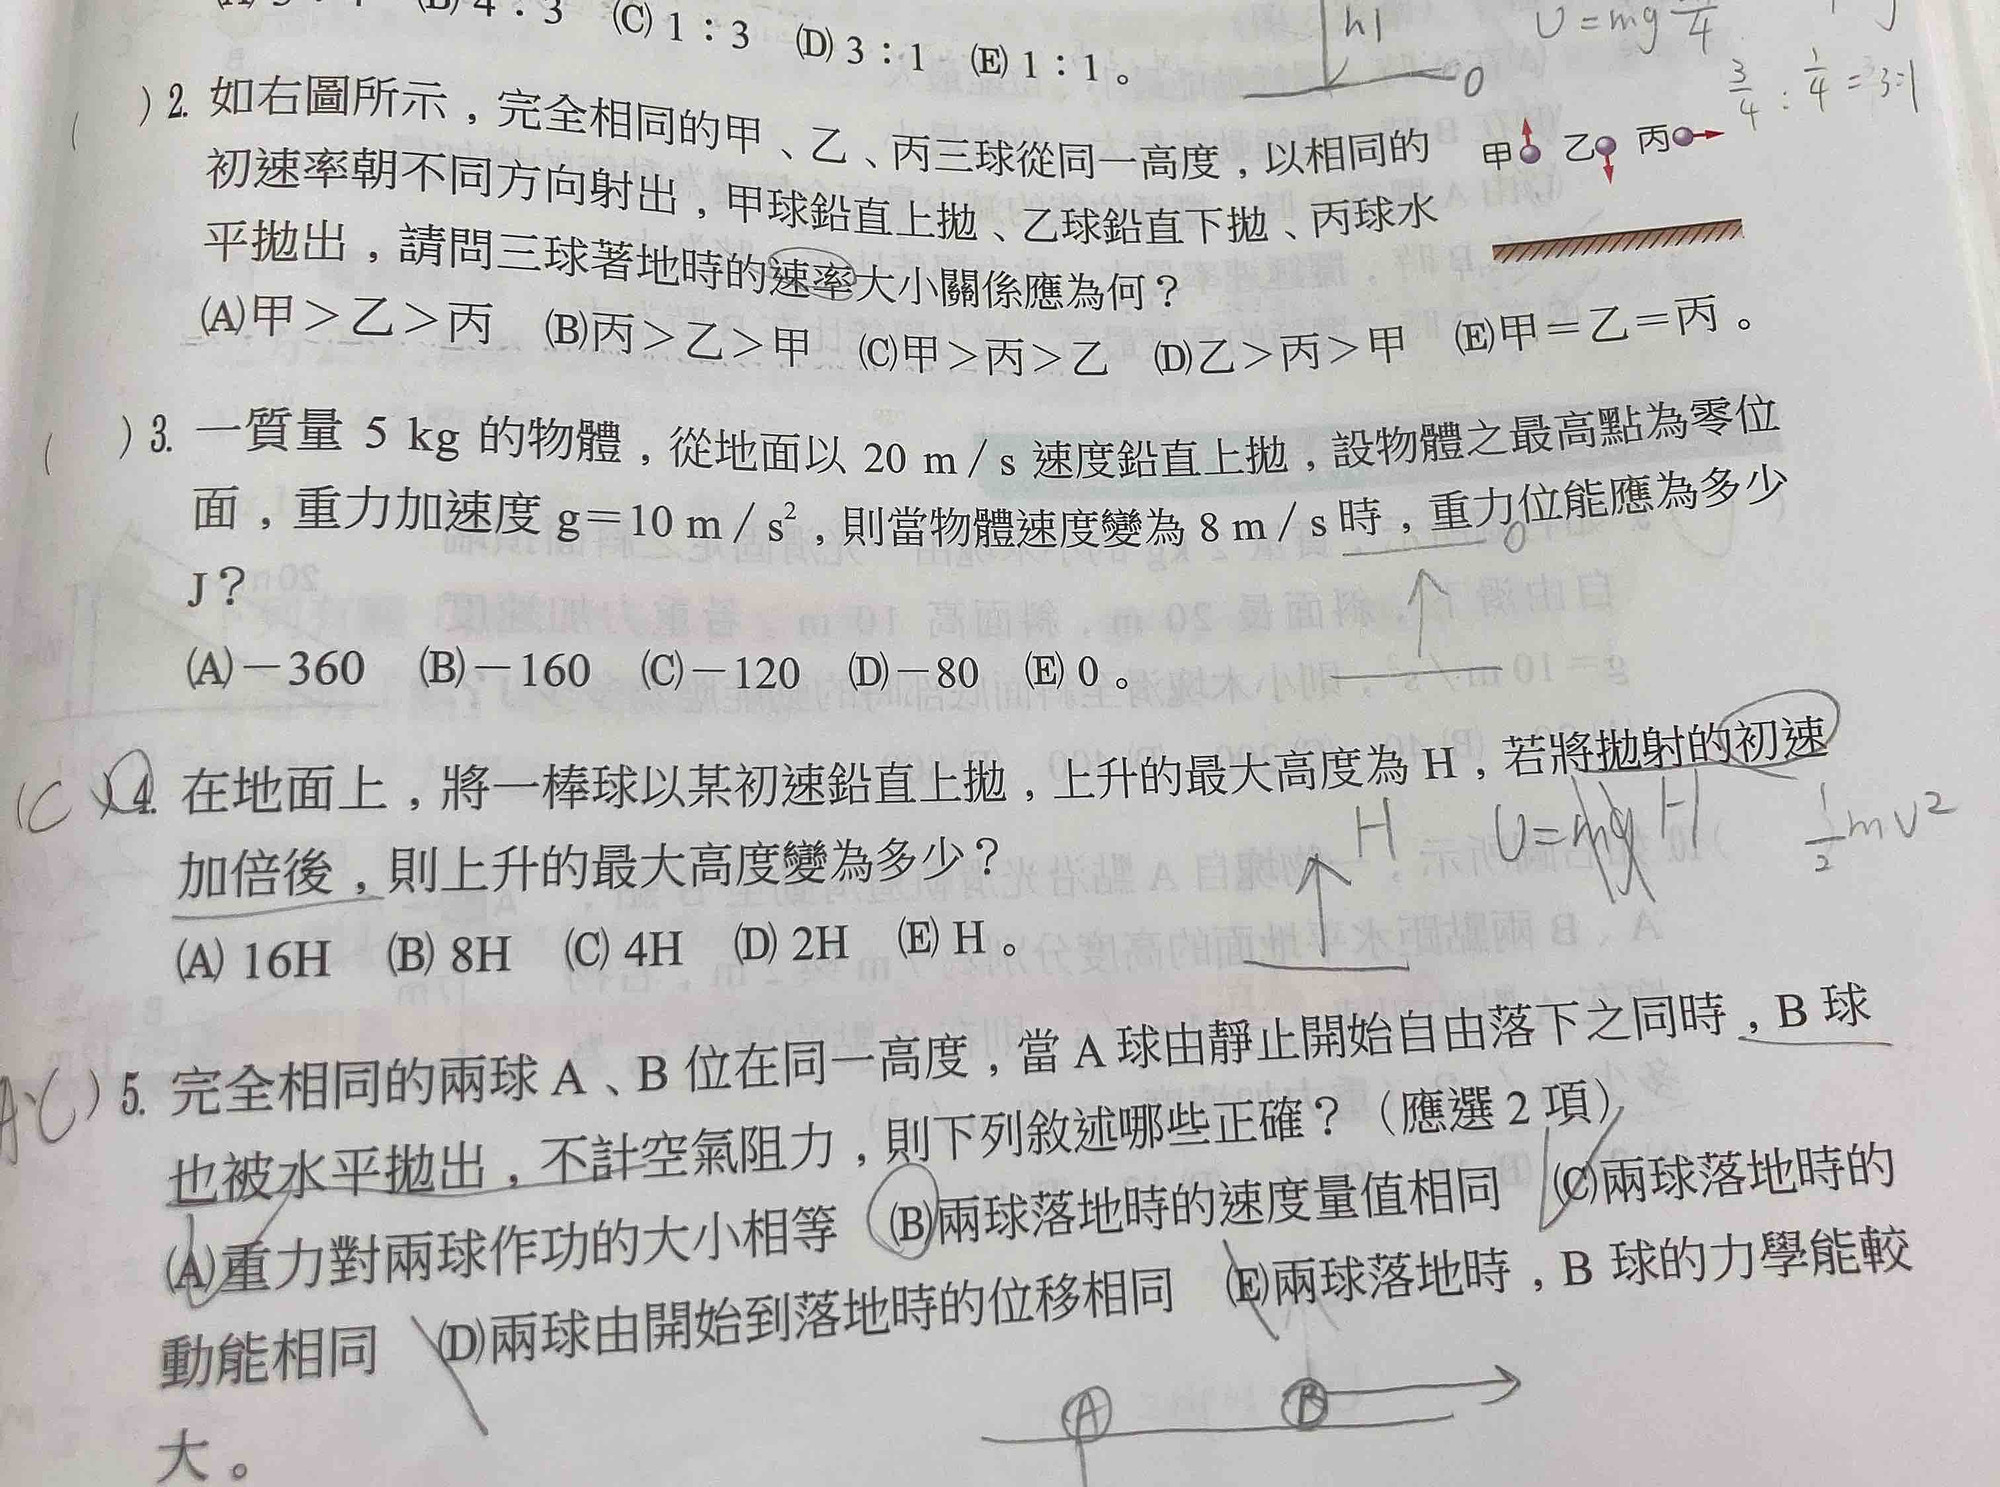 (B) 4：3 (C) 1：3 (D) 3：1 (E) 1：1。
h1
0
U=mg
3/4 : 1/4 = 3:1
( )2. 如右圖所示，完全相同的甲、乙、丙三球從同一高度，以相同的
初速率朝不同方向射出，甲球鉛直上拋、乙球鉛直下拋、丙球水
平拋出，請問三球著地時的速率大小關係應為何？
(A)甲＞乙＞丙 (B)丙＞乙＞甲 (C)甲＞丙＞乙 (D)乙＞丙＞甲 (E)甲＝乙＝丙。
甲 乙 丙
( )3. 一質量 5 kg 的物體，從地面以 20 m／s 速度鉛直上拋，設物體之最高點為零位
面，重力加速度 g＝10 m／s²，則當物體速度變為 8 m／s 時，重力位能應為多少
J？
0
(A)－360 (B)－160 (C)－120 (D)－80 (E) 0。
(C)4. 在地面上，將一棒球以某初速鉛直上拋，上升的最大高度為 H，若將拋射的初速
加倍後，則上升的最大高度變為多少？
H
U=mgH
1/2 mv²
(A) 16H (B) 8H (C) 4H (D) 2H (E) H。
A、C)5. 完全相同的兩球 A、B 位在同一高度，當 A 球由靜止開始自由落下之同時，B 球
也被水平拋出，不計空氣阻力，則下列敘述哪些正確？（應選 2 項）
(A)重力對兩球作功的大小相等 (B)兩球落地時的速度量值相同 (C)兩球落地時的
動能相同 (D)兩球由開始到落地時的位移相同 (E)兩球落地時，B 球的力學能較
大。
A B